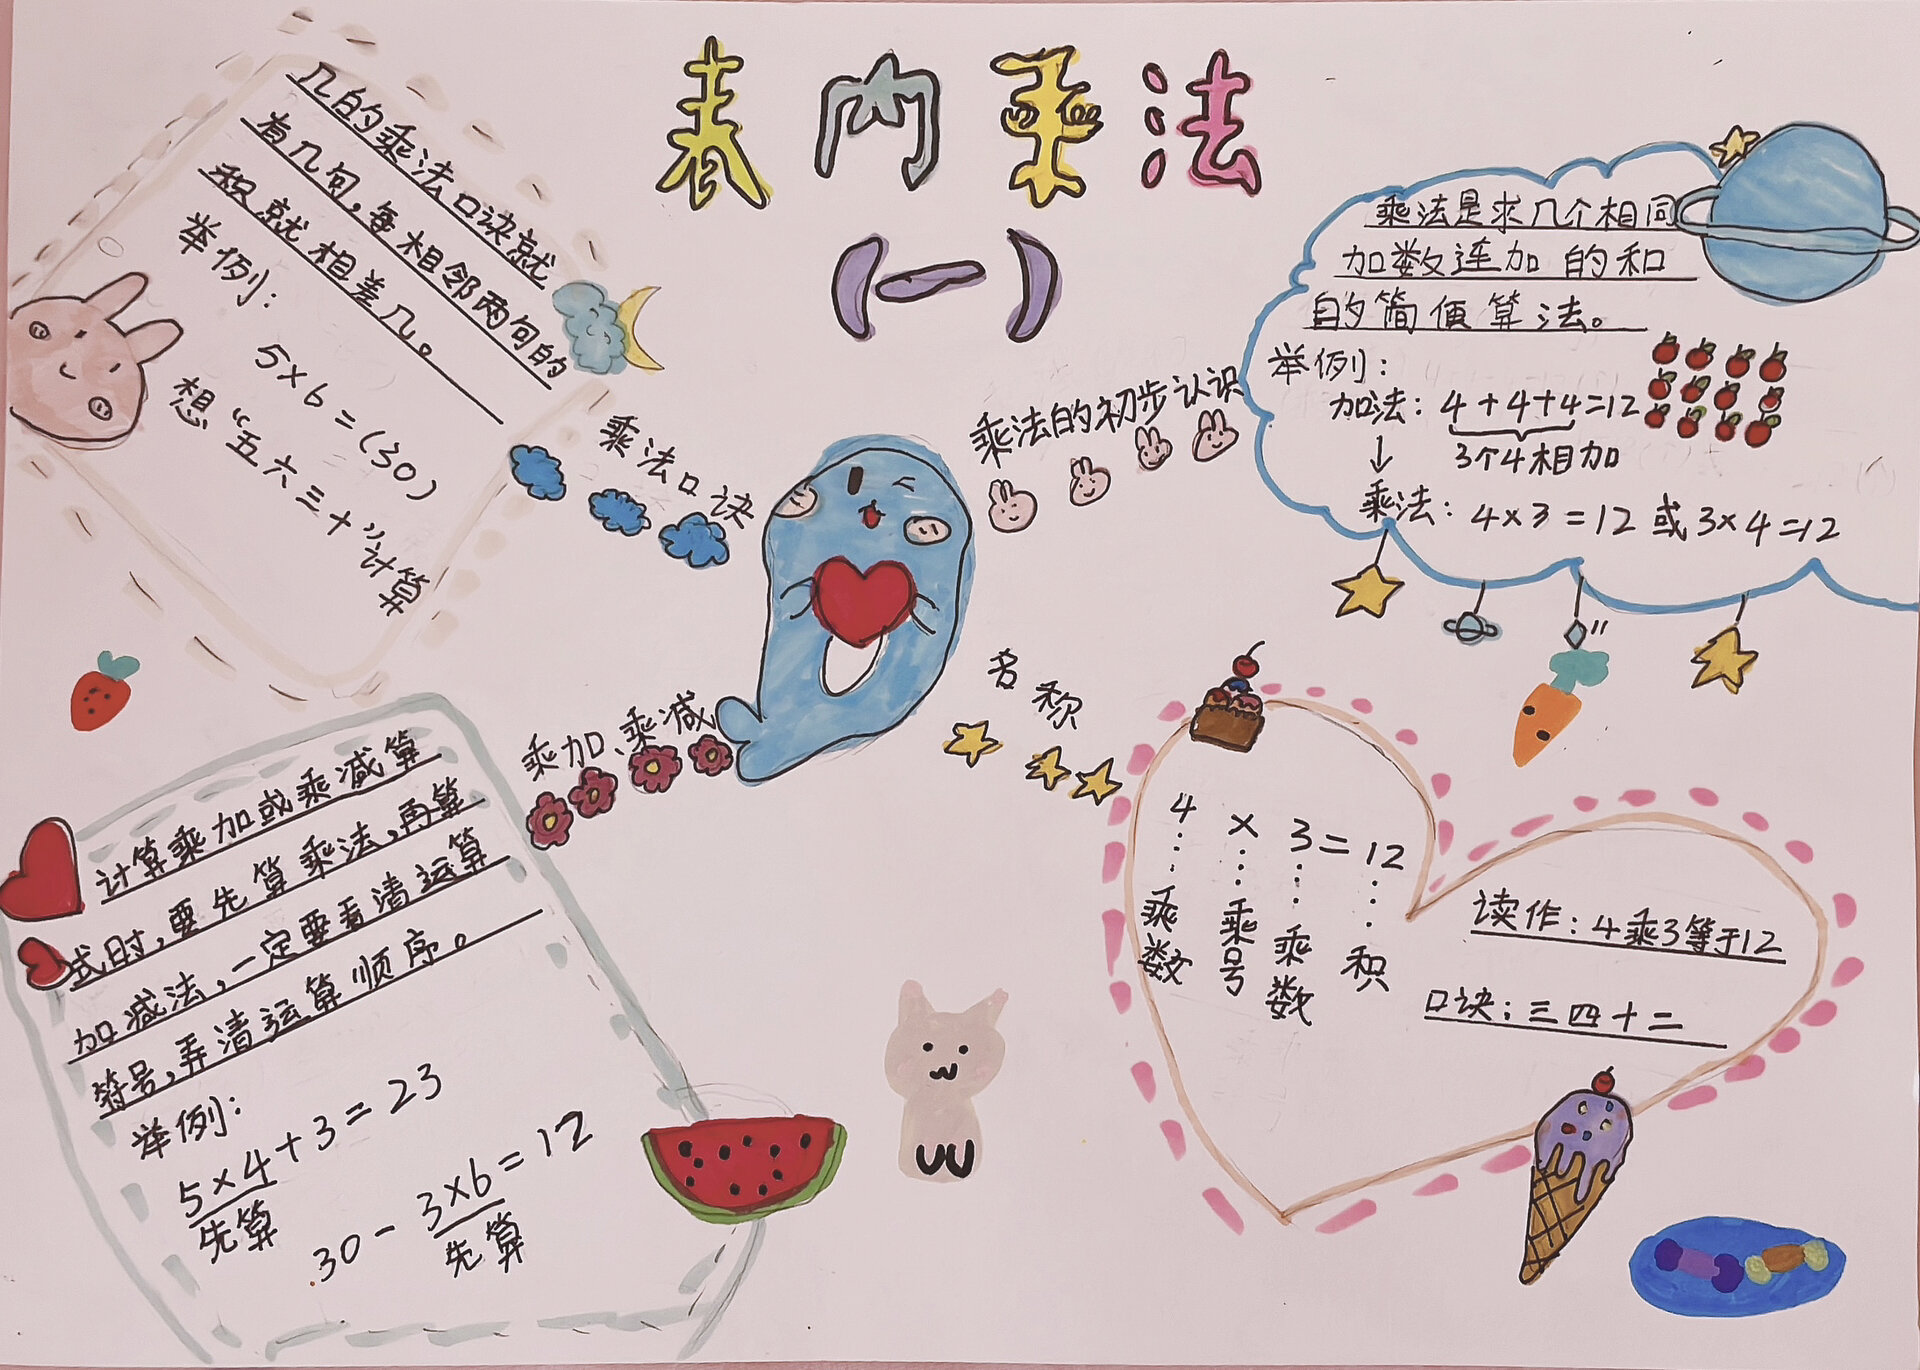 表内乘法
(一)
几的乘法口诀就
有几句,每相邻两句的
积就相差几。
举例:
5×6=(30)
想“五六三十”计算
乘法口诀
乘法的初步认识
乘法是求几个相同
加数连加的和
的简便算法。
举例:
加法:4+4+4=12
3个4相加
↓
乘法:4×3=12或3×4=12
乘加、乘减
计算乘加或乘减算
式时,要先算乘法,再算
加减法,一定要看清运算
符号,弄清运算顺序。
举例:
5×4+3=23
先算
30-3×6=12
先算
名称
4×3=12
乘数
乘号
乘数
积
读作:4乘3等于12
口诀:三四十二